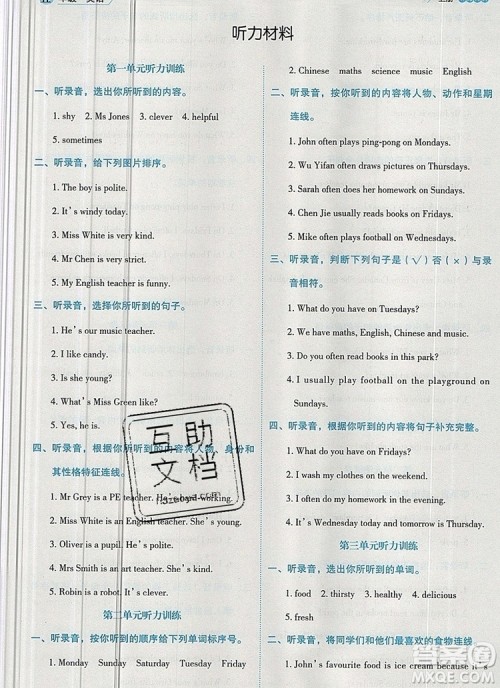 听力材料
第一单元听力训练
一、听录音，选出你所听到的内容。
1. shy 2. Ms Jones 3. clever 4. helpful
5. sometimes
二、听录音，给下列图片排序。
1. The boy is polite.
2. It's windy today.
3. Miss White is very kind.
4. Mr Chen is very strict.
5. My English teacher is funny.
三、听录音，选择你所听到的句子。
1. He's our music teacher.
2. I like candy.
3. Is she young?
4. What's Miss Green like?
5. Yes, he is.
四、听录音，根据你所听到的内容将人物、身份和
其性格特征连线。
1. Mr Grey is a PE teacher. He's hard-working.
2. Miss White is an English teacher. She's kind.
3. Oliver is a pupil. He's clever.
4. Mrs Smith is an art teacher. She is strict.
5. Robin is a robot. He's clever.
第二单元听力训练
一、听录音，按你所听到的顺序给下列单词标序号。
1. Monday Sunday Saturday Tuesday Friday
2. Chinese maths science music English
二、听录音，按你所听到的内容将人物、动作和星期
连线。
1. John often plays ping-pong on Mondays.
2. Wu Yifan often draws pictures on Tuesdays.
3. Sarah often does her homework on Sundays.
4. Chen Jie usually reads books on Fridays.
5. Mike often plays football on Wednesdays.
三、听录音，判断下列句子是（√）否（×）与录
音相符。
1. What do you have on Tuesdays?
2. We have maths, English, Chinese and music.
3. Do you often read books in this park?
4. I usually play football on the playground on
Sundays.
四、听录音，根据你所听到的内容将句子补充完整。
1. What do you have on Fridays?
2. I wash my clothes on the weekend.
3. I often do my homework on Sundays.
4. Today is Wednesday and tomorrow is Thursday.
第三单元听力训练
一、听录音，选出你所听到的单词。
1. food 2. thirsty 3. delicious 4. hot
5. fresh
二、听录音，将同学们和他们最喜欢的食物连线。
1. John's favourite food is ice cream because it's
互助
文档